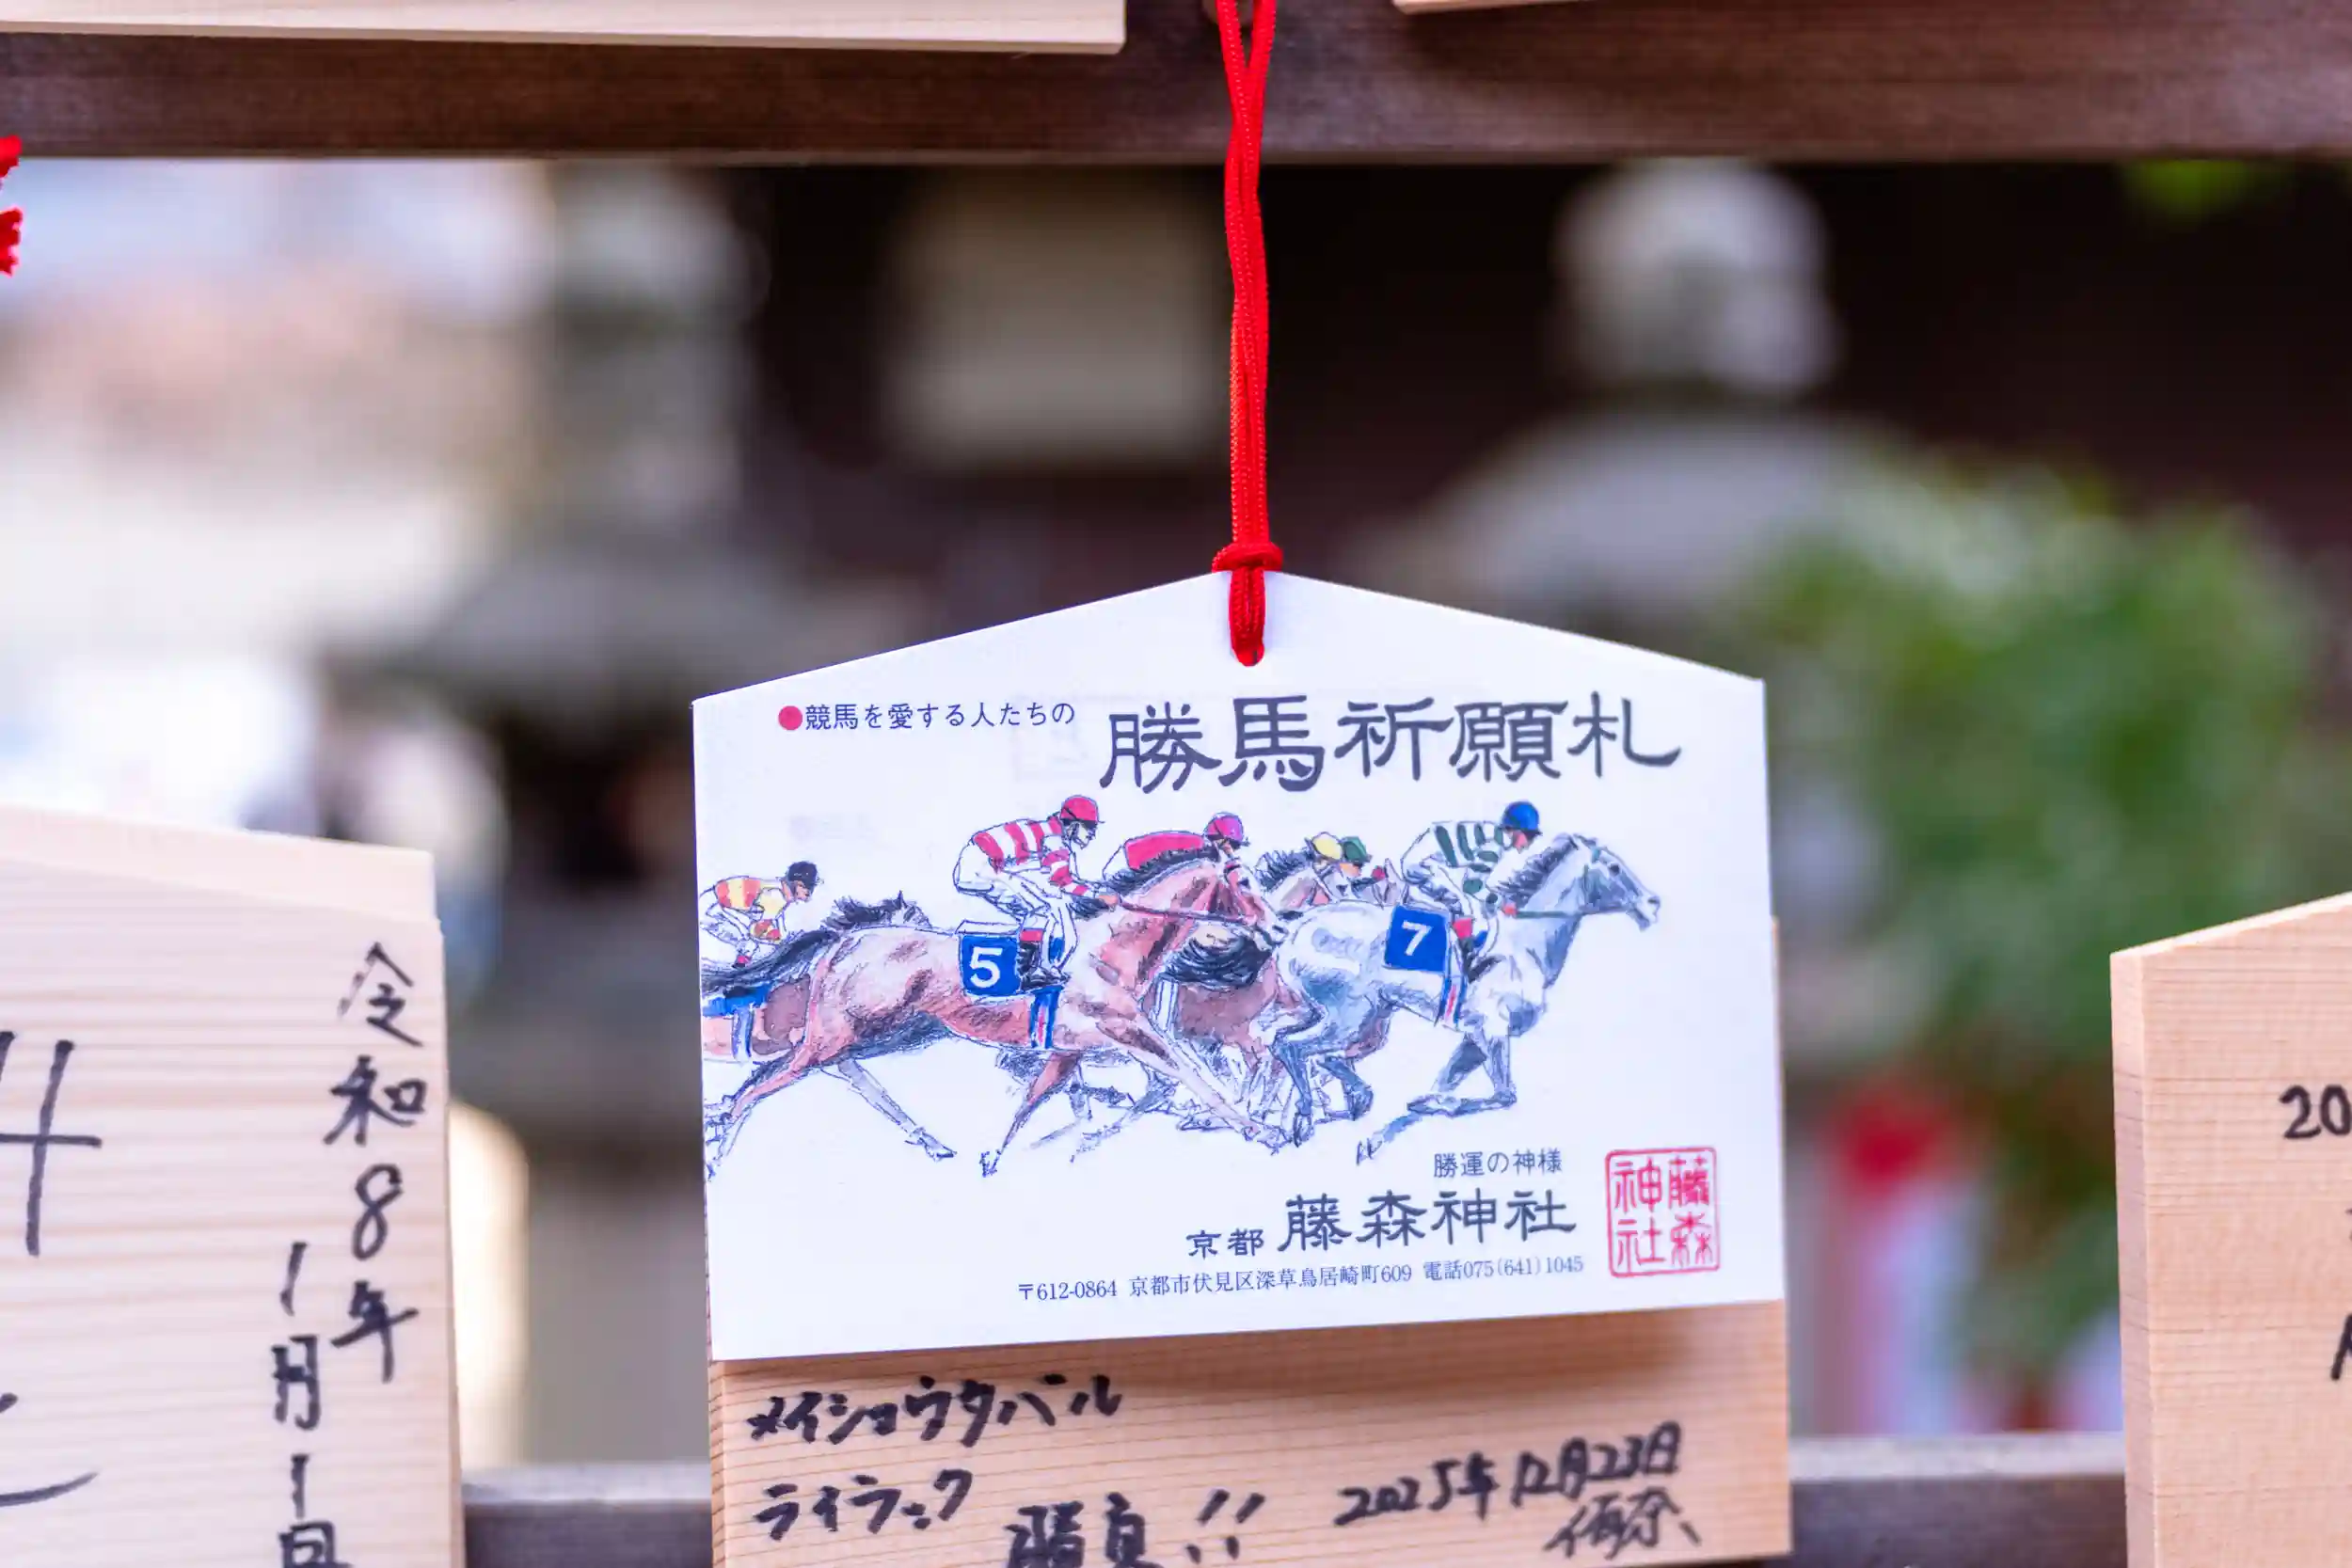 ●競馬を愛する人たちの 勝馬祈願札
5
7
勝運の神様
京都 藤森神社
藤森神社
〒612-0864 京都市伏見区深草鳥居崎町609 電話075(641)1045
メイショウタバル
ライラック
2025年12月23日
!!
令和8年
1月1日
20